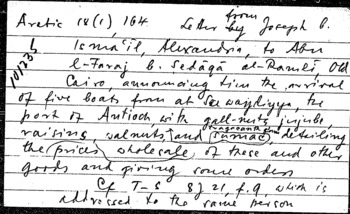 Arabic 18(1) 164 Letter from by Joseph b.
Ismā'īl, Alexandria, to Abu
l-Faraj b. Sedāqā al-Ramlī, Old
Cairo, announcing him the arrival
of five boats from al-Suwaydiyya, the
port of Antioch with gall-nuts, jujube
raisins, walnuts and fragrant sumac, detailing
the prices wholesale of these and other
goods and giving some orders
Cf T-S 8J 21, f.9 which is
addressed to the same person